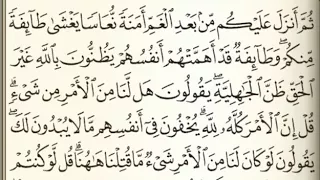 ثُمَّ أَنزَلَ عَلَيْكُم مِّنۢ بَعْدِ ٱلْغَمِّ أَمَنَةً نُّعَاسًا يَغْشَىٰ طَآئِفَةً
مِّنكُمْ ۖ وَطَآئِفَةٌ قَدْ أَهَمَّتْهُمْ أَنفُسُهُمْ يَظُنُّونَ بِٱللَّهِ غَيْرَ
ٱلْحَقِّ ظَنَّ ٱلْجَـٰهِلِيَّةِ ۖ يَقُولُونَ هَل لَّنَا مِنَ ٱلْأَمْرِ مِن شَىْءٍ ۗ
قُلْ إِنَّ ٱلْأَمْرَ كُلَّهُۥ لِلَّهِ ۗ يُخْفُونَ فِىٓ أَنفُسِهِم مَّا لَا يُبْدُونَ لَكَ ۖ
يَقُولُونَ لَوْ كَانَ لَنَا مِنَ ٱلْأَمْرِ شَىْءٌ مَّا قُتِلْنَا هَـٰهُنَا ۗ قُل لَّوْ كُنتُمْ